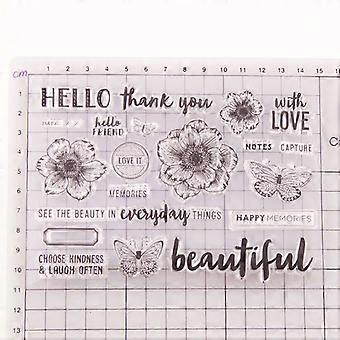 cm 1 2 3 4 5 6 7 8 9 10 11 12 13 14 15 16
1
2
3
4
5
6
7
8
9
10
11
12
13
HELLO thank you
with
LOVE
hello
FRIEND
LOVE IT
NOTES CAPTURE
MEMORIES
SEE THE BEAUTY IN everyday THINGS
HAPPY MEMORIES
CHOOSE KINDNESS
& LAUGH OFTEN
beautiful